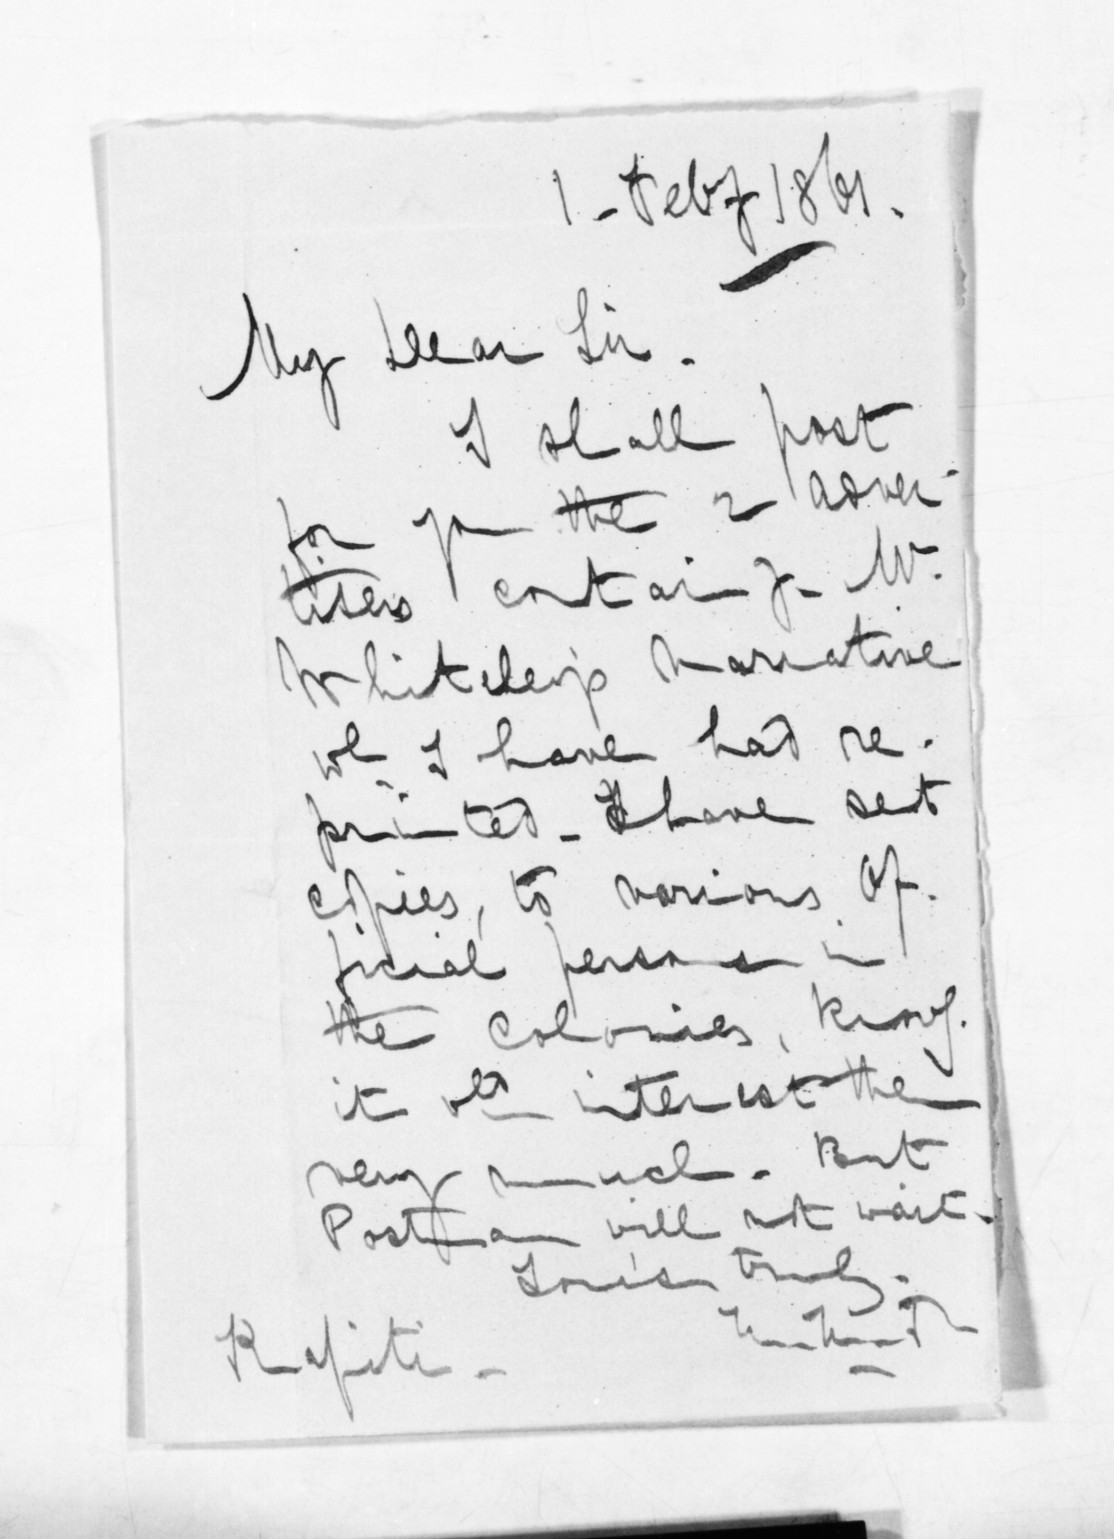 1 - Feby 1861.
My Dear Sir.
I shall post
for you the 2 Adver-
tisers containg. Mr.
Whiteley's Narrative
wh I have had re-
printed - I have sent
copies, to various Of-
ficial persons in
the Colonies, knowg.
it wd interest them
very much. But
Postman will not wait.
Yours truly.
Kapiti -